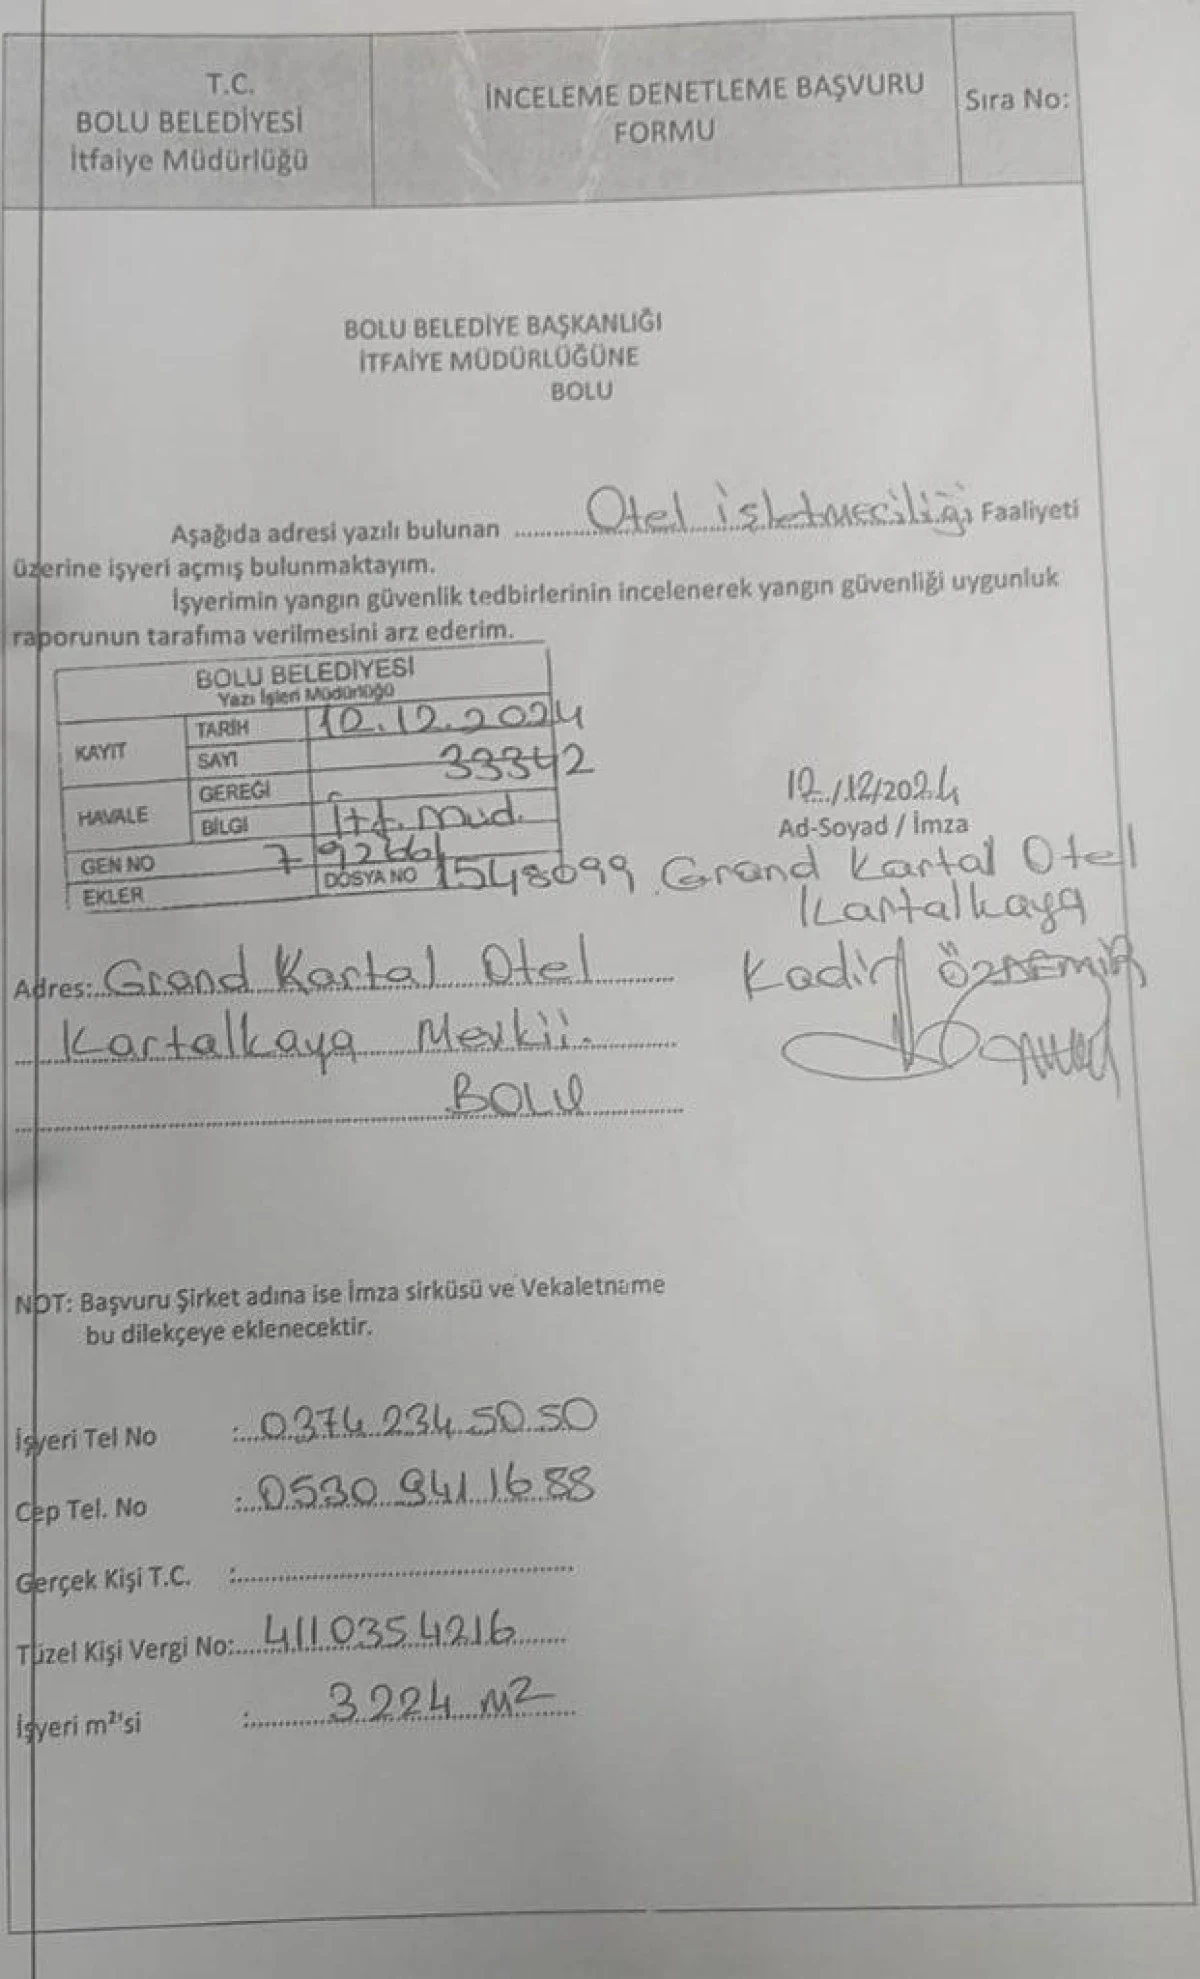 T.C.
BOLU BELEDİYESİ
İtfaiye Müdürlüğü
İNCELEME DENETLEME BAŞVURU
FORMU
Sıra No:
BOLU BELEDİYE BAŞKANLIĞI
İTFAİYE MÜDÜRLÜĞÜNE
BOLU
Aşağıda adresi yazılı bulunan Otel işletmeciliği Faaliyeti
üzerine işyeri açmış bulunmaktayım.
İşyerimin yangın güvenlik tedbirlerinin incelenerek yangın güvenliği uygunluk
raporunun tarafıma verilmesini arz ederim.
BOLU BELEDİYESİ
Yazı İşleri Müdürlüğü
KAYIT TARİH 12.12.2024
SAYI 33342
HAVALE GEREĞİ
BİLGİ İtf. Müd.
GEN NO
EKLER DOSYA NO 1548699
12/12/2024
Ad-Soyad / İmza
Grand Kartal Otel
Kartalkaya
Kadir ÖZDEMİR
Adres: Grand Kartal Otel
Kartalkaya Mevkii.
BOLU
NOT: Başvuru Şirket adına ise İmza sirküsü ve Vekaletname
bu dilekçeye eklenecektir.
İşyeri Tel No : 0374 234 50 50
Cep Tel. No : 0530 941 16 88
Gerçek Kişi T.C. :
Tüzel Kişi Vergi No: 4110354216
İşyeri m²'si : 3224 m2